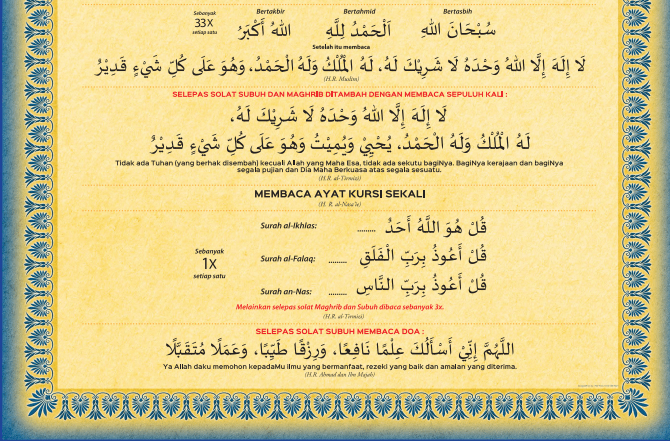 Sebanyak 33X setiap satu
Bertakbir Bertahmid Bertasbih
سُبْحَانَ اللهِ اَلْحَمْدُ لِلَّهِ اللهُ أَكْبَرُ
Setelah itu membaca
لَا إِلَهَ إِلَّا اللهُ وَحْدَهُ لَا شَرِيْكَ لَهُ، لَهُ الْمُلْكُ وَلَهُ الْحَمْدُ، وَهُوَ عَلَى كُلِّ شَيْءٍ قَدِيْرٌ
(H.R. Muslim)
SELEPAS SOLAT SUBUH DAN MAGHRIB DITAMBAH DENGAN MEMBACA SEPULUH KALI :
لَا إِلَهَ إِلَّا اللهُ وَحْدَهُ لَا شَرِيْكَ لَهُ،
لَهُ الْمُلْكُ وَلَهُ الْحَمْدُ، يُحْيِيْ وَيُمِيْتُ وَهُوَ عَلَى كُلِّ شَيْءٍ قَدِيْرٌ
Tidak ada Tuhan (yang berhak disembah) kecuali Allah yang Maha Esa, tidak ada sekutu bagiNya. BagiNya kerajaan dan bagiNya
segala pujian dan Dia Maha Berkuasa atas segala sesuatu.
(H.R. al-Tirmizi)
MEMBACA AYAT KURSI SEKALI
(H. R. al-Nasa'ie)
Sebanyak 1X setiap satu
Surah al-Ikhlas: ......... قُلْ هُوَ اللَّهُ أَحَدٌ
Surah al-Falaq: ......... قُلْ أَعُوذُ بِرَبِّ الْفَلَقِ
Surah an-Nas: ......... قُلْ أَعُوذُ بِرَبِّ النَّاسِ
Melainkan selepas solat Maghrib dan Subuh dibaca sebanyak 3x.
(H.R. al-Tirmizi)
SELEPAS SOLAT SUBUH MEMBACA DOA :
اللَّهُمَّ إِنِّيْ أَسْأَلُكَ عِلْمًا نَافِعًا، وَرِزْقًا طَيِّبًا، وَعَمَلًا مُتَقَبَّلًا
Ya Allah daku memohon kepadaMu ilmu yang bermanfaat, rezeki yang baik dan amalan yang diterima.
(H.R. Ahmad dan Ibn Majah)